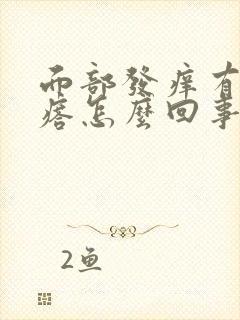 而部發癢有
痞怎麼回事
2鱼